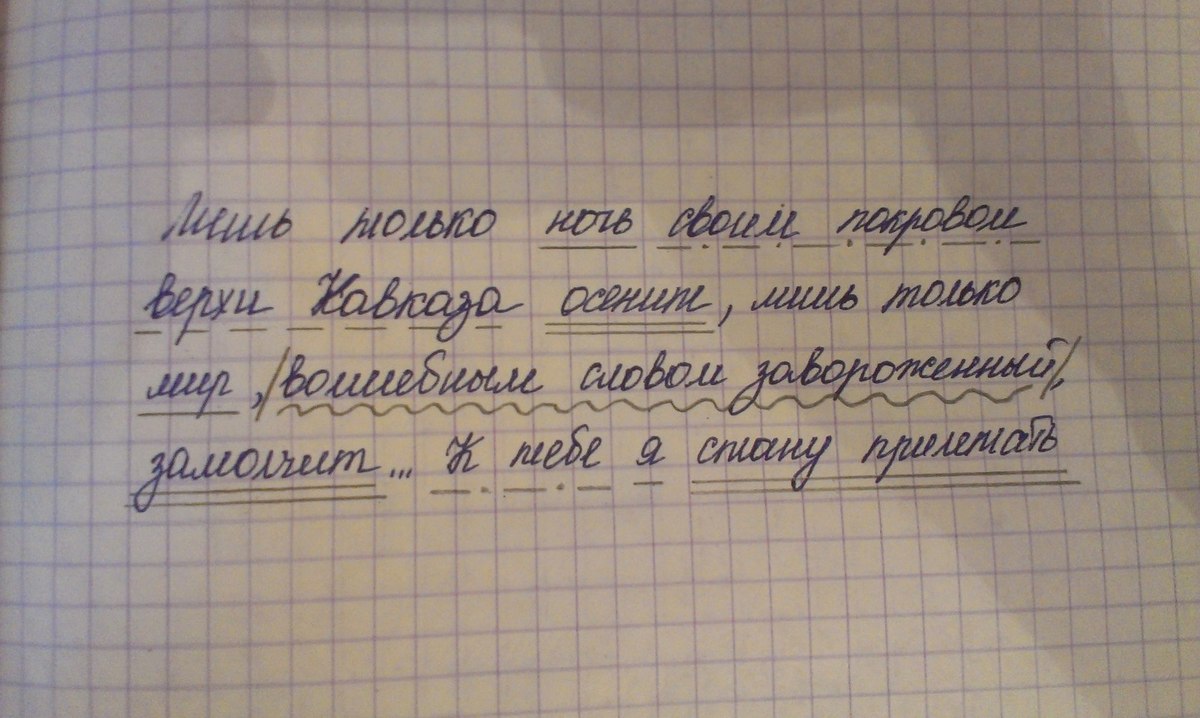 Лишь только ночь своим покровом
верхи Кавказа осенит, лишь только
мир, /волшебным словом завороженный/,
замолчит... К тебе я стану прилетать